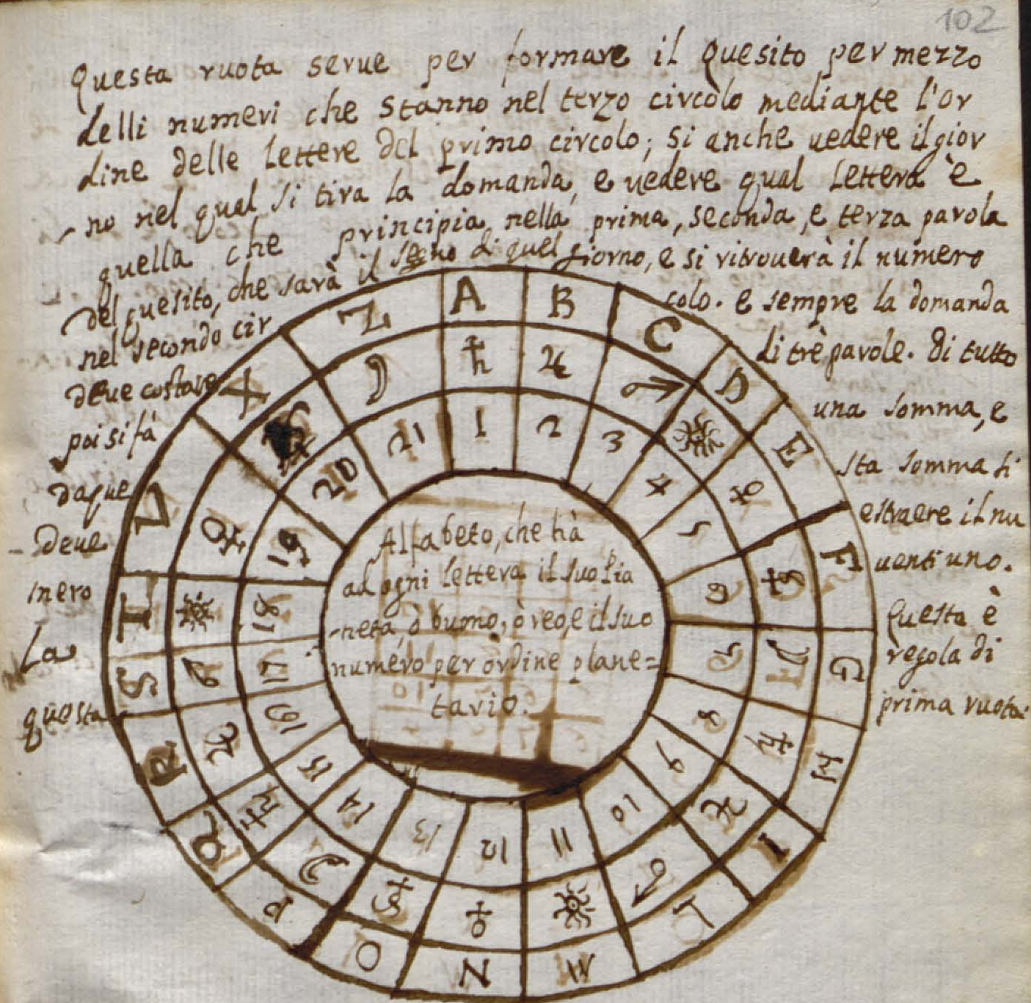 102
Questa ruota serve per formare il Quesito per mezzo
delli numeri che stanno nel terzo circolo mediante l'or
dine delle lettere del primo circolo; si anche vedere il gior
no nel qual si tira la domanda, e vedere qual lettera è
quella che principia nella prima, seconda, e terza parola
del quesito, che sarà il segno di quel giorno, e si ritroverà il numero
nel secondo cir colo. e sempre la domanda
deve costare di trè parole. Di tutto
poi si fà una somma, e
daque sta somma si
deve estraere il nu
mero venti uno.
La Questa è
regola di
questa prima ruota.
A B C D E F G H I L M N O P Q R S T V X Z
♄ ♃ ♂ ☼ ♀ ☿ ☽ ♄ ♃ ♂ ☼ ♀ ☿ ☽ ♄ ♃ ♂ ☼ ♀ ☿ ☽
1 2 3 4 5 6 7 8 9 10 11 12 13 14 15 16 17 18 19 20 21
Alfabeto, che hà
ad ogni lettera il suo Pia
neta, ò buono, ò reo, e il suo
numero per ordine plane=
tario.